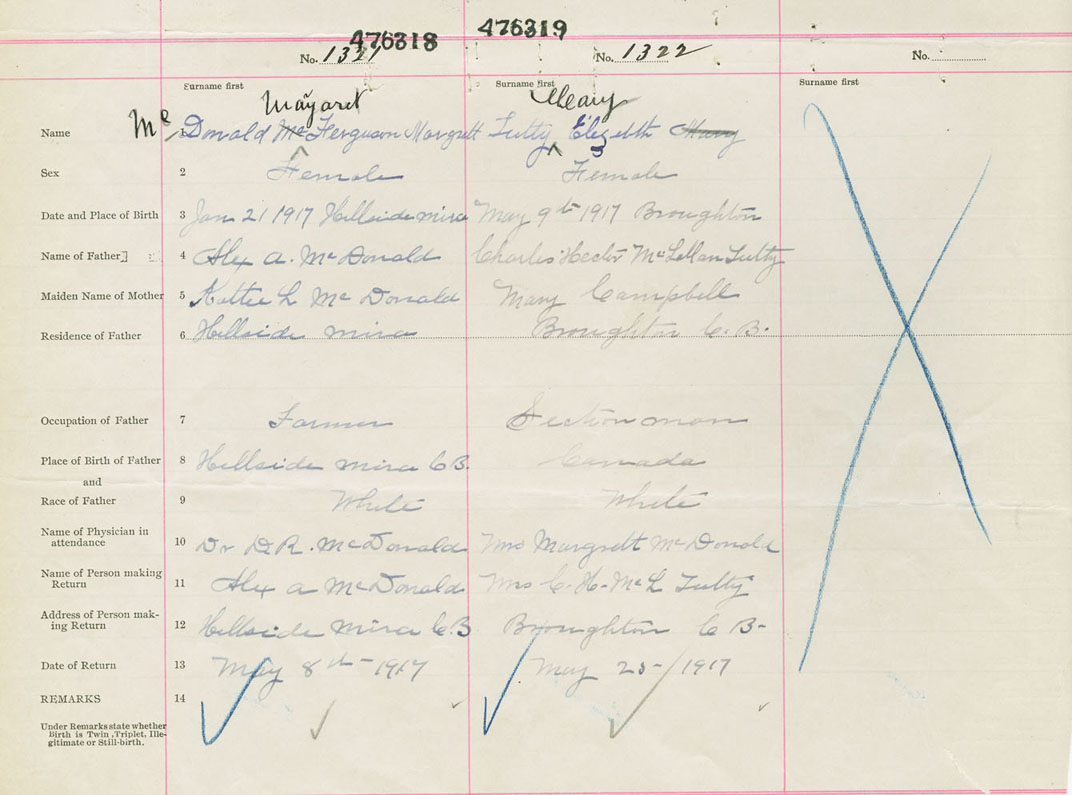 476318 476319
No. 1321 No. 1322 No.
Surname first Surname first Surname first
Margaret Mary
Name Mc 1 Donald Mc Ferguson Margrett Tutty Elizebth
Sex 2 Female Female
Date and Place of Birth 3 Jan 21 1917 Hillside mira May 9th 1917 Broughton
Name of Father 4 Alex A. McDonald Charles Hector McLellan Tutty
Maiden Name of Mother 5 Kattie L McDonald Mary Campbell
Residence of Father 6 Hillside mira Broughton C.B.
Occupation of Father 7 Farmer Section man
Place of Birth of Father 8 Hillside mira C.B. Canada
and
Race of Father 9 White White
Name of Physician in
attendance 10 Dr D.R. McDonald Mrs Margrett McDonald
Name of Person making
Return 11 Alex A McDonald Mrs C-H-McL Tutty
Address of Person mak-
ing Return 12 Hillside mira C.B Broughton C B-
Date of Return 13 May 8th-1917 May 25-/1917
REMARKS 14
Under Remarks state whether
Birth is Twin, Triplet, Ille-
gitimate or Still-birth.